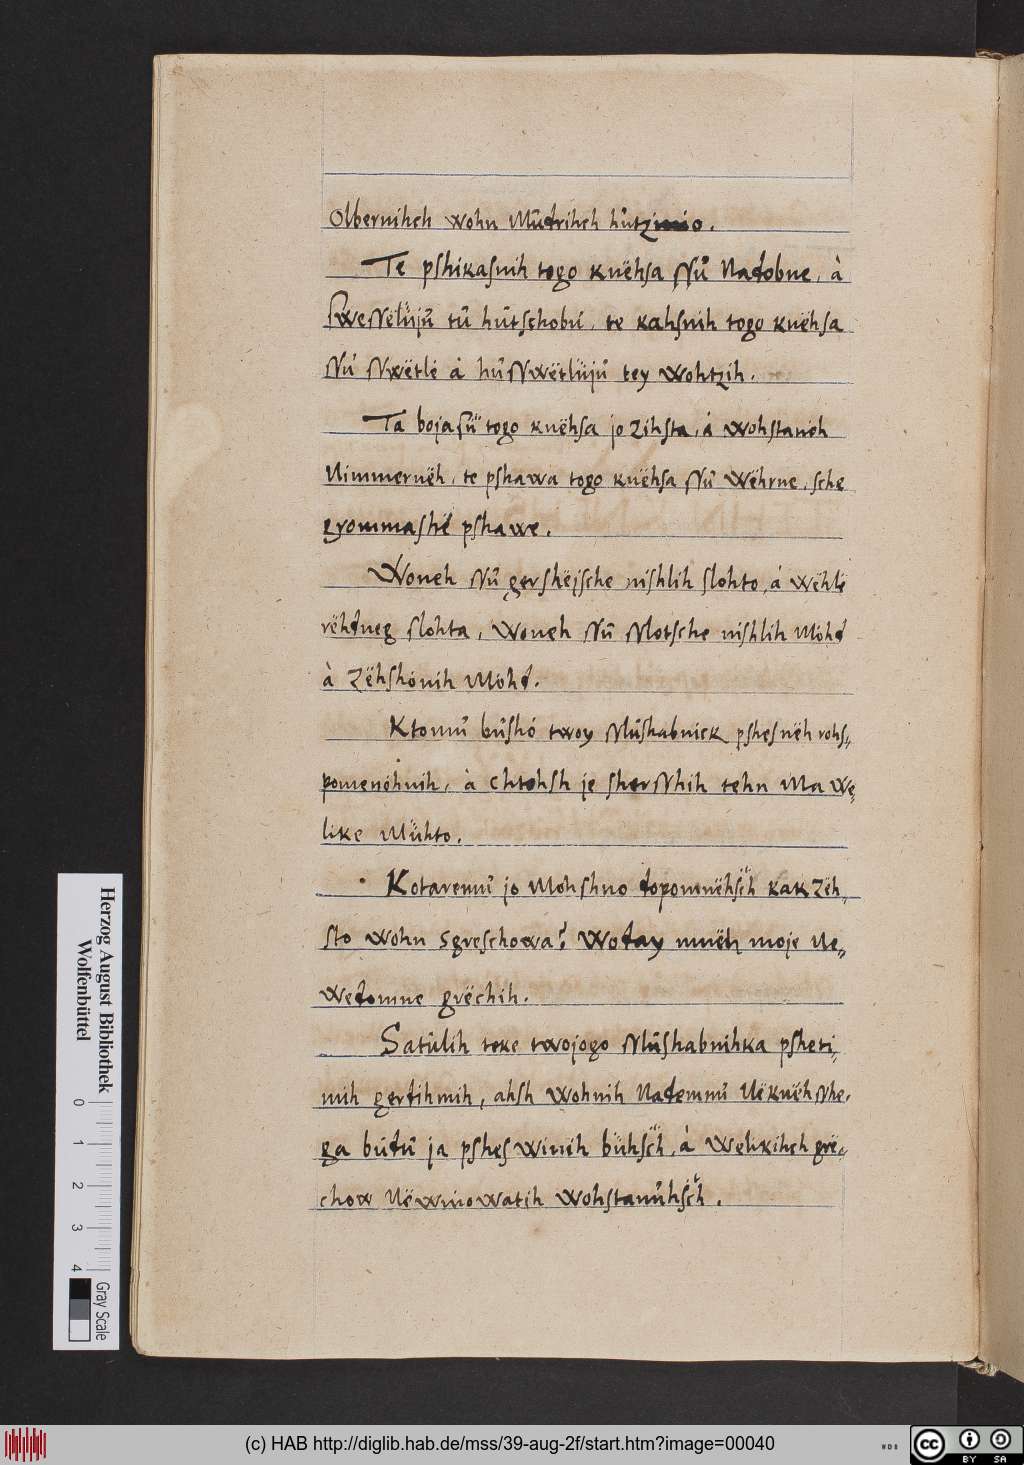 Olbernihch wohn Mŭdrihch hŭtzinio.
Te pshikasnih togo knëhsa ſſŭ Nadobne, à
ſweſſelŭjŭ tŭ hŭtschobú, te kahsnih togo knëhsa
ſſŭ ſſwëtlé á hŭſſwëtlŭjŭ tey wohtzih.
Ta bojaſŭ togo knëhsa jo zihsta, á wohstaneh
Nimmernëh, te pshawa togo knëhsa ſſŭ Wëhrne, sche
gyommashé pshawe.
Woneh ſſŭ gershëjsche nishlih slohto, á wëhle
rëhdneg slohta, Woneh ſſŭ ſſlotsche nishlih Mohd
à Zëhshónih Mohd.
Ktomŭ bŭshó twoy ſſlŭshabnick pshesnëh rohs-
pomenóhnih, à chtohsh je sherſſhih tehn Ma We-
like Mŭhto.
Kotaremŭ jo Mohshno dopomnëhsch kak Zëh-
sto wohn sgreschowa? Woday mnëh moje Ne-
wedomne grëchih.
Satŭlih teke twojogo ſſlŭshabnihka psheti-
mih gerdihmih, ahsh wohnih Nademnŭ Nëknëhſſhe-
ga bŭdŭ ja pshes winëh bŭhsch, á Welikihch grë-
chow Nëwinowatih wohstanŭhsch.
Herzog August Bibliothek
Wolfenbüttel
0 1 2 3 4
Gray Scale
(c) HAB http://diglib.hab.de/mss/39-aug-2f/start.htm?image=00040
WDB
cc BY SA